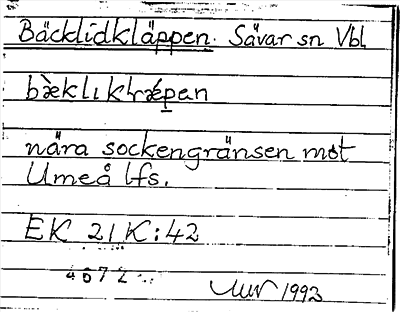 Bäcklidkläppen. Sävar sn Vbl.
nära sockengränsen mot
Umeå lfs.
EK 21K:42
1992